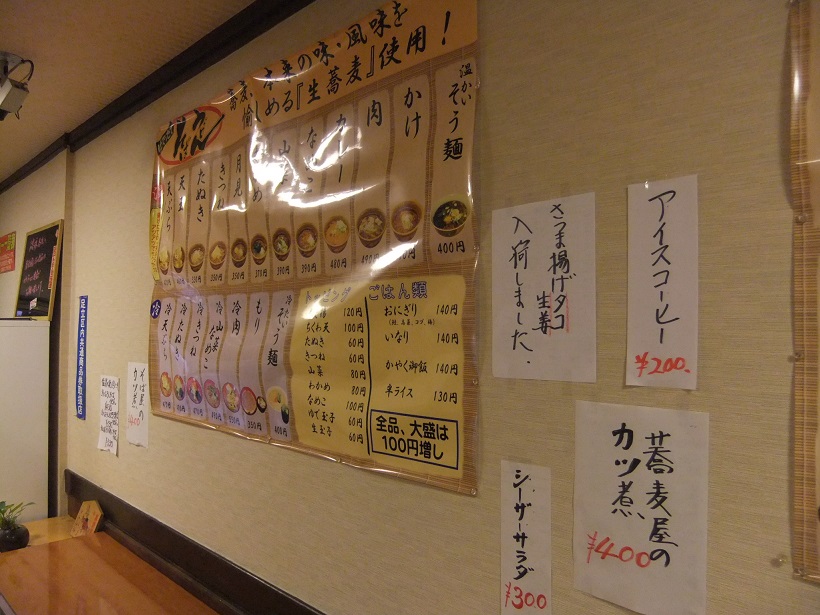 蕎麦、本来の味・風味を
愉しめる『生蕎麦』使用！
温かいそう麺
400円
かけ
肉
480円
カレー
480円
なめこ
山菜
390円
わかめ
370円
月見
きつね
たぬき
天玉
天ぷら
冷
冷たいそう麺
400円
もり
350円
冷肉
冷山菜なめこ
冷きつね
冷たぬき
冷天ぷら
トッピング
120円
ちくわ天 100円
たぬき 60円
きつね 60円
山菜 80円
わかめ 80円
なめこ 100円
ゆで玉子 60円
生玉子 60円
ごはん類
おにぎり 140円
いなり 140円
かやく御飯 140円
半ライス 130円
全品、大盛は
100円増し
さつま揚げタコ
生姜
入荷しました。
アイスコーヒー
¥200.
蕎麦屋の
カツ煮
¥400
シーザーサラダ
¥300
足立区内共通商品券取扱店
そば屋の
カツ煮
¥400